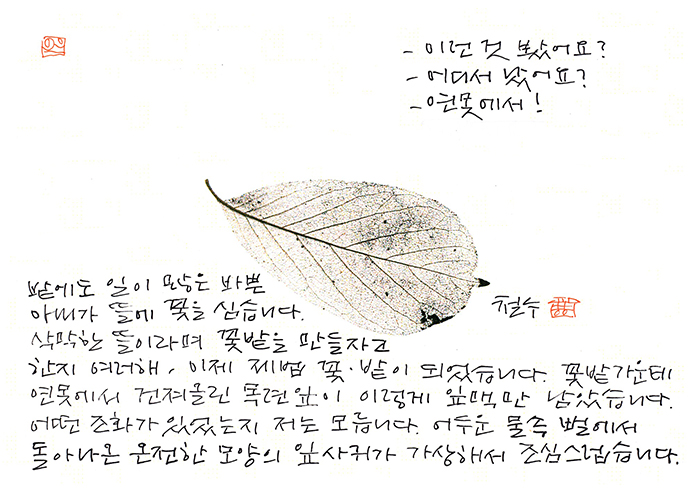 - 이런 것 보셨어요?
- 어디서 났어요?
- 연못에서!
밭에도 일이 많은 바쁜
아내가 뜰에 꽃을 심습니다.
삭막한 뜰이라며 꽃밭을 만들자고
한지 여러해, 이제 제법 꽃·밭이 되었습니다. 꽃밭 가운데
연못에서 건져올린 목련잎이 이렇게 잎맥만 남았습니다.
어떤 조화가 있었는지 저는 모릅니다. 어두운 물속 뻘에서
돌아나온 온전한 모양의 잎사귀가 가상해서 조심스럽습니다.
철수